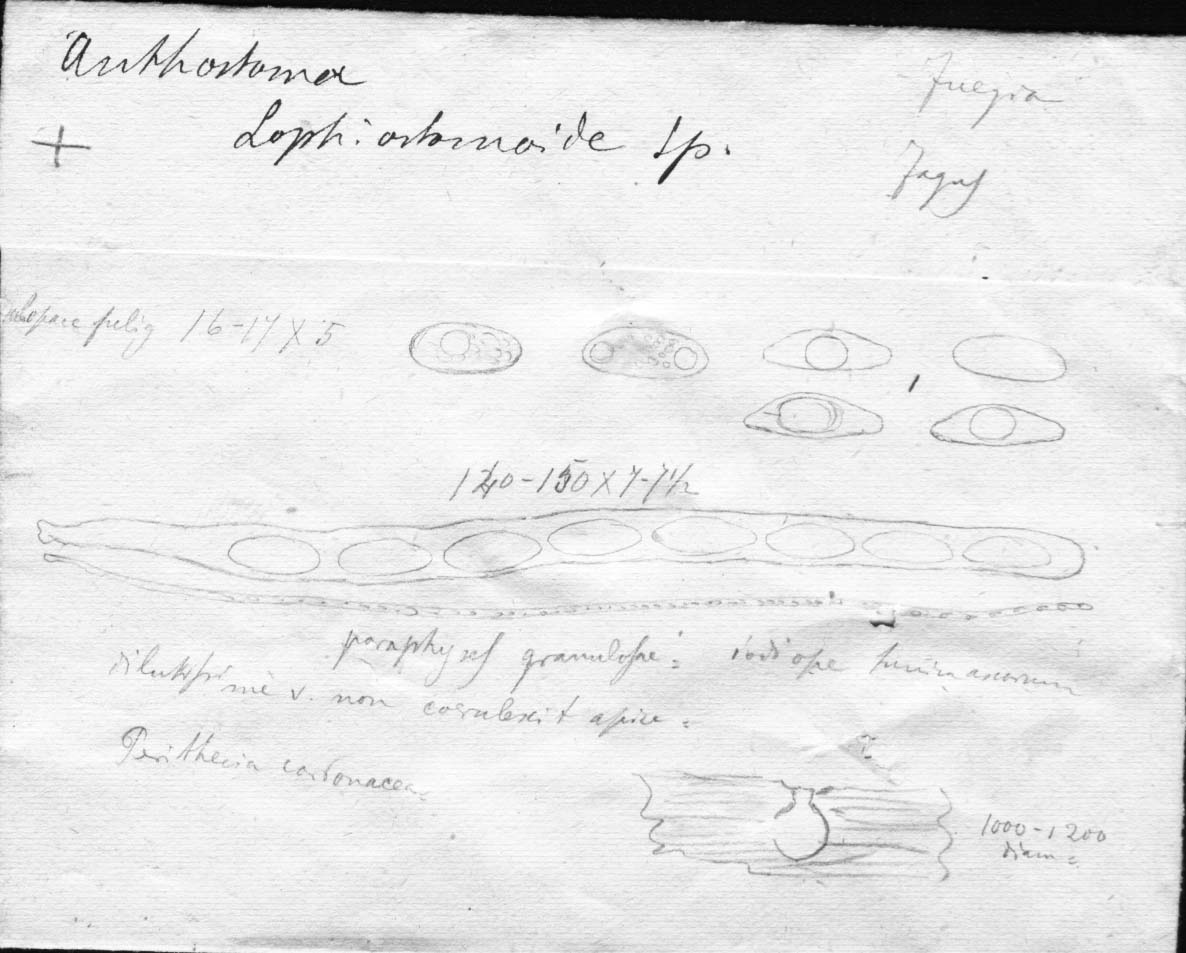 Anthostoma
Fuegia
+ Lophiostomoide Sp.
Fagus
fulig 16-17 X 5
140-150 X 7-7½
paraphyses granulosae = iodi ope
dilutissime v. non coerulescit apice =
Perithecia carbonacea =
1000-1200
diam =